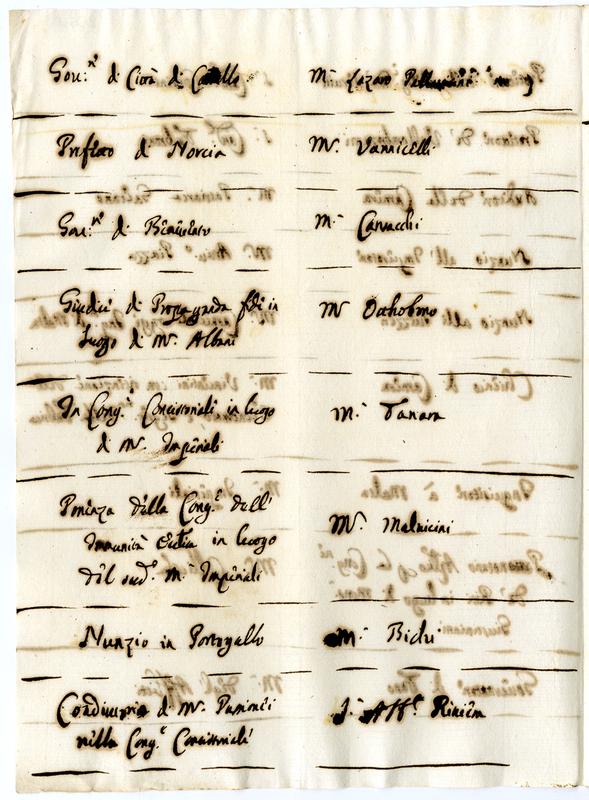 Gov.re di Città di Castello M.r Lazaro Pallavicini
Prefetto di Norcia M.r Vannicelli
Gov.re di Benevento M.r
Giudice di Propaganda fide in M.r
luogo di M.r Albani
In Cong.e Concistoriale in luogo M.r Tanara
di M.r Imperiali
Ponenza della Cong.e dell'
Immunità in luogo M.r Malvicini
del sud.o M.r Imperiali
Nunzio in Portogallo M.r Bichi
di M.r Passionei
nella Cong.e Concistoriale